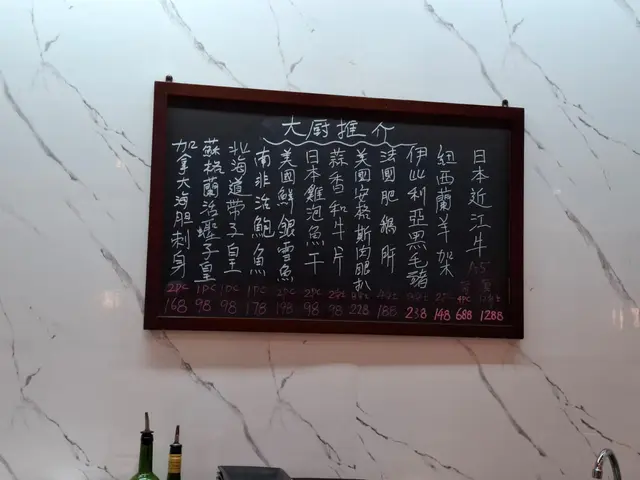 大厨推介
日本近江牛 A5 1288
紐西蘭羊架 4pc 688
伊比利亞黑毛豬 148
法國肥鵝肝 238
美國安格斯肉眼扒 188
蒜香和牛片 228
日本雞泡魚干 98
美國鮮銀雪魚 2pc 198
南非活鮑魚 1pc 178
北海道帶子皇 1pc 98
蘇格蘭活蟶子皇 1pc 98
加拿大海胆刺身 2pc 168